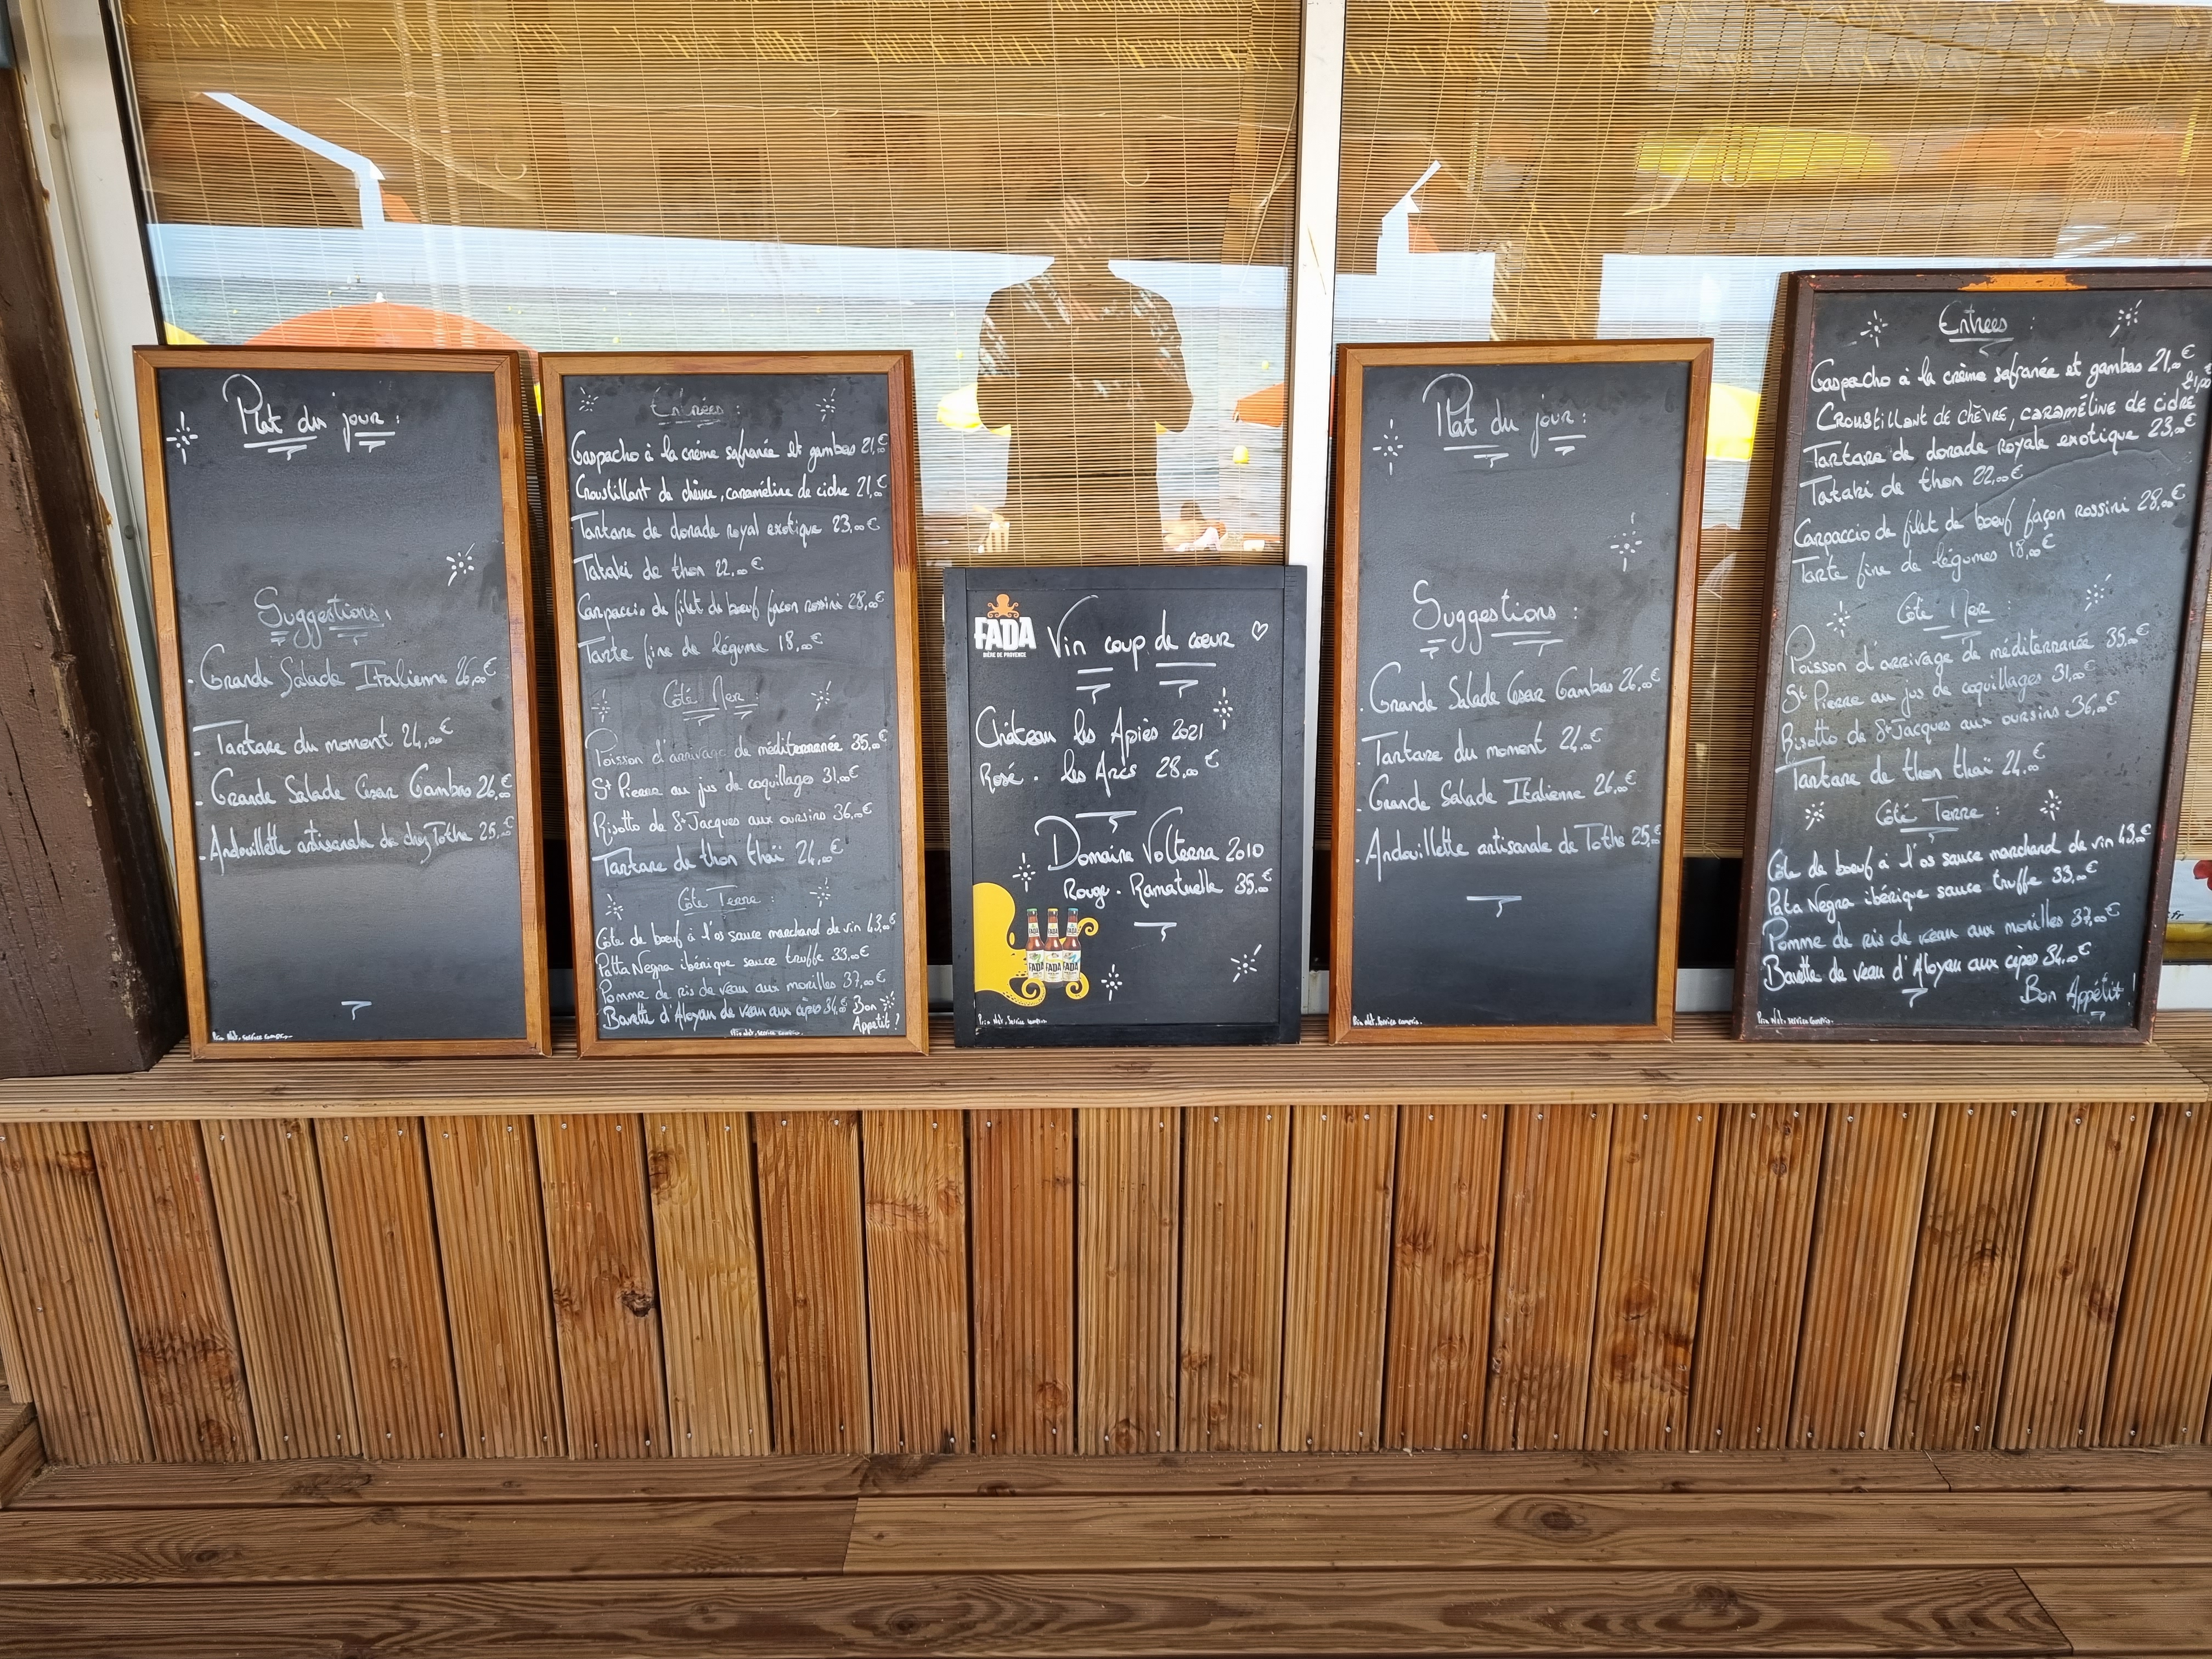 Plat du jour :
Suggestions :
- Grande Salade Italienne 26,00€
- Tartare du moment 24,00€
- Grande Salade Cesar Gambas 26,00€
- Andouillette artisanale de chez Tothe 25,00€
Prix Net, Service compris.
Entrées :
Gaspacho à la crème safranée et gambas 21,00€
Croustillant de chèvre, caraméline de cidre 21,00€
Tartare de dorade royal exotique 23,00€
Tataki de thon 22,00€
Carpaccio de filet de boeuf façon rossini 28,00€
Tarte fine de légume 18,00€
Côté Mer :
Poisson d'arrivage de méditerranée 35,00€
St Pierre au jus de coquillages 31,00€
Risotto de St Jacques aux oursins 36,00€
Tartare de thon thaï 24,00€
Côté Terre :
Côte de boeuf à l'os sauce marchand de vin 43,00€
Patta Negra ibérique sauce truffe 33,00€
Pomme de ris de veau aux morilles 37,00€
Bavette d'Aloyau de veau aux cèpes 34,00€
Bon Appétit !
Prix Net, Service compris.
FADA
BIÈRE DE PROVENCE
Vin coup de coeur ♡
Château les Apiès 2021
Rosé . les Arcs 28,00€
Domaine Volterra 2010
Rouge . Ramatuelle 35,00€
FADA FADA FADA
Prix Net, Service compris.
Plat du jour :
Suggestions :
. Grande Salade Cesar Gambas 26,00€
. Tartare du moment 24,00€
. Grande Salade Italienne 26,00€
. Andouillette artisanale de Tothe 25,00€
Prix Net, Service compris.
Entrées :
Gaspacho à la crème safranée et gambas 21,00€
Croustillant de chèvre, caraméline de cidre 21,00€
Tartare de dorade royale exotique 23,00€
Tataki de thon 22,00€
Carpaccio de filet de boeuf façon rossini 28,00€
Tarte fine de légumes 18,00€
Côté Mer :
Poisson d'arrivage de méditerranée 35,00€
St Pierre au jus de coquillages 31,00€
Risotto de St Jacques aux oursins 36,00€
Tartare de thon thaï 24,00€
Côté Terre :
Côte de boeuf à l'os sauce marchand de vin 43,00€
Pata Negra ibérique sauce truffe 33,00€
Pomme de ris de veau aux morilles 37,00€
Bavette de veau d'Aloyau aux cèpes 34,00€
Bon Appétit !
Prix Net, Service compris.